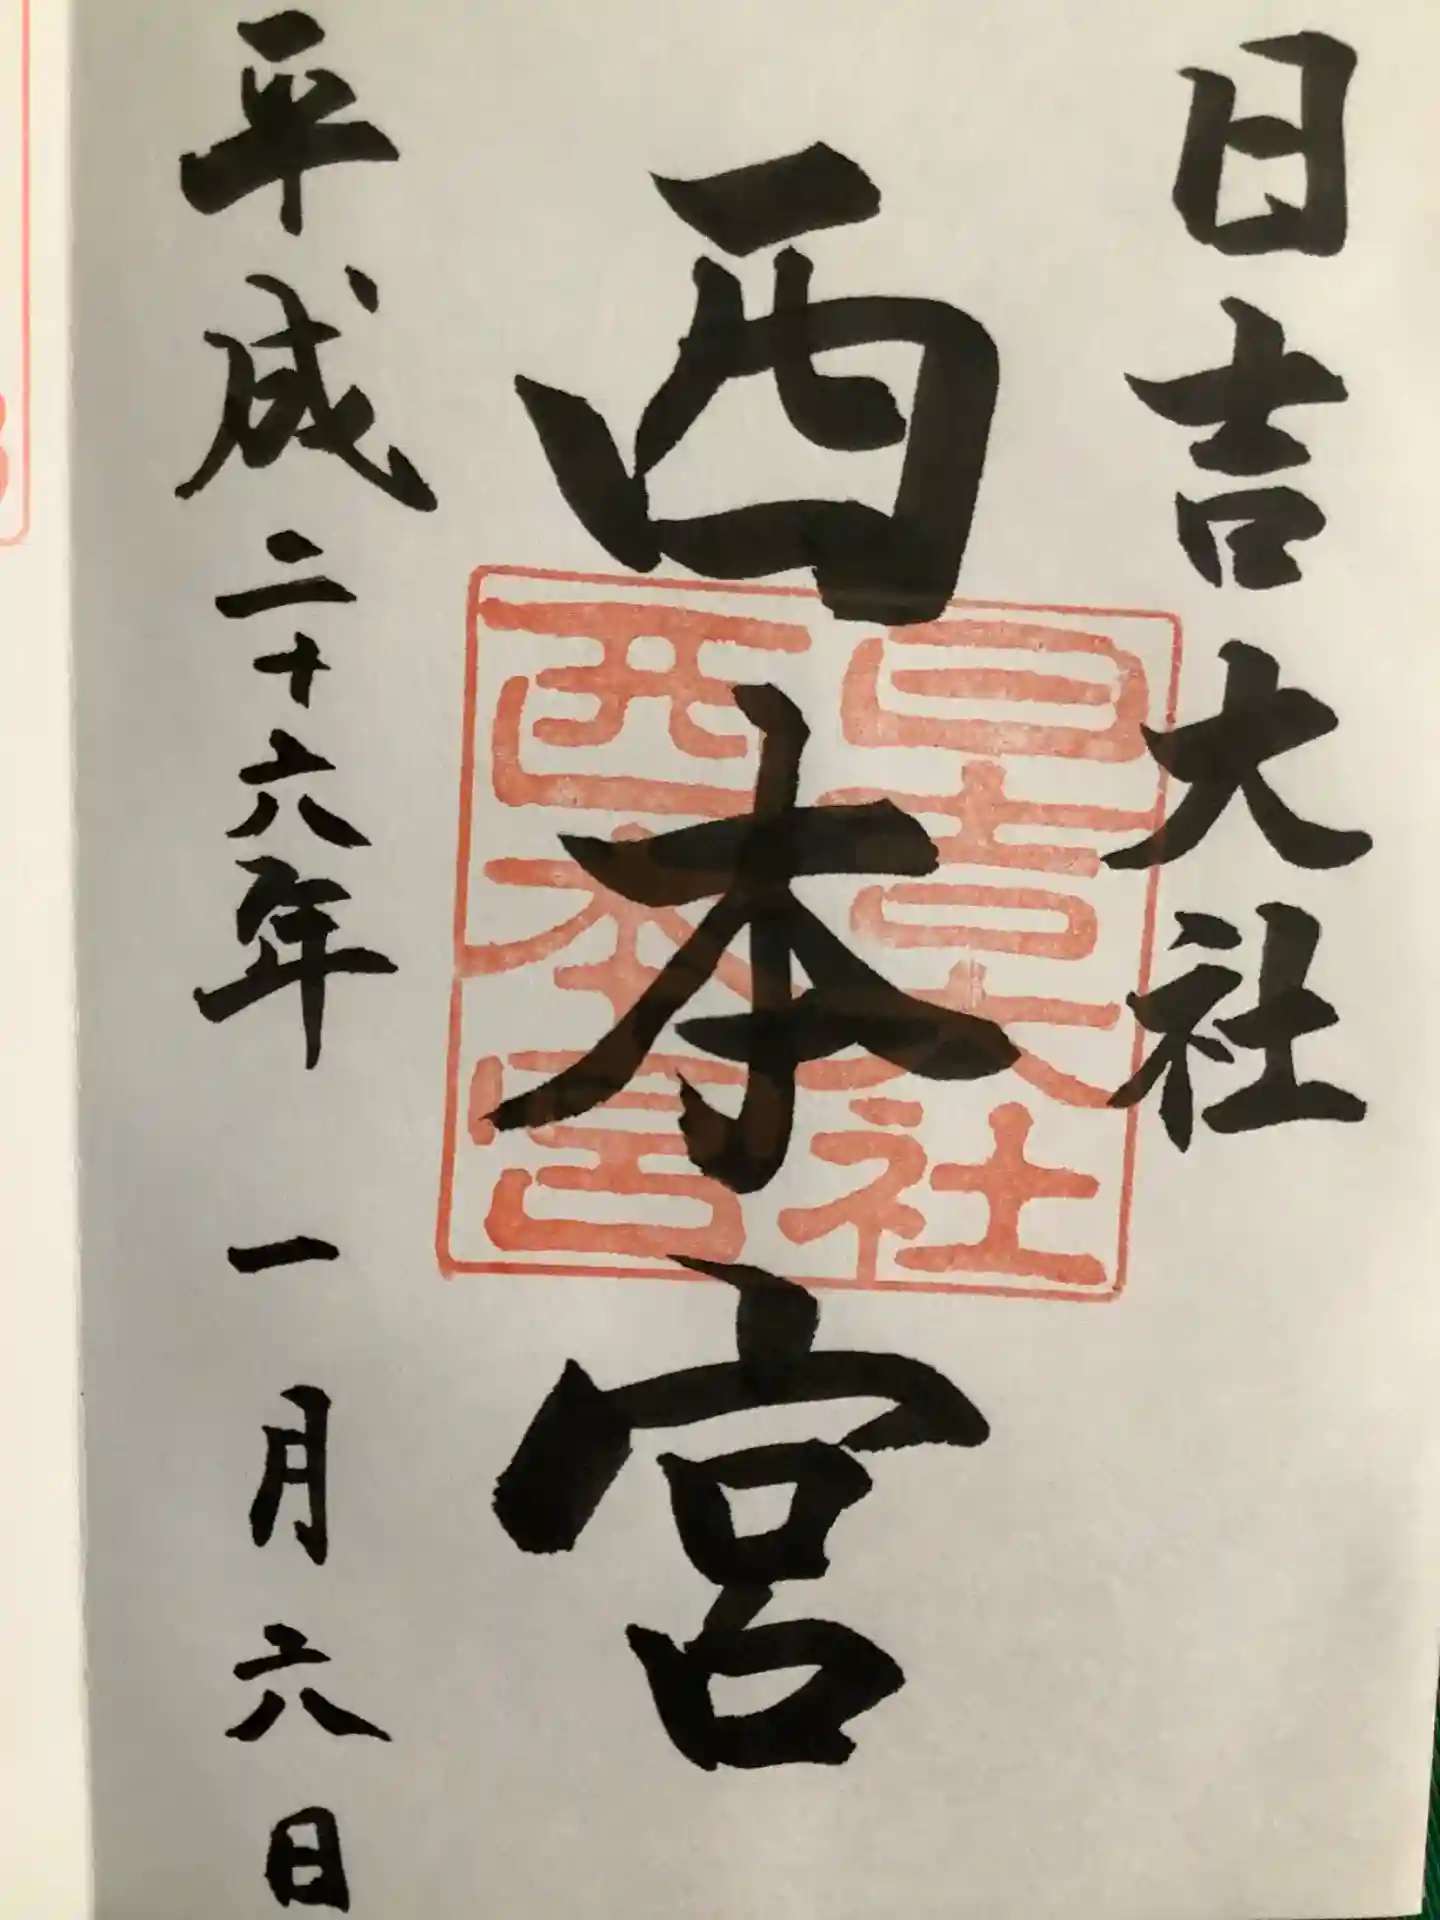 日吉大社
西本宮
平成二十六年 一月六日
日吉大社
西本宮